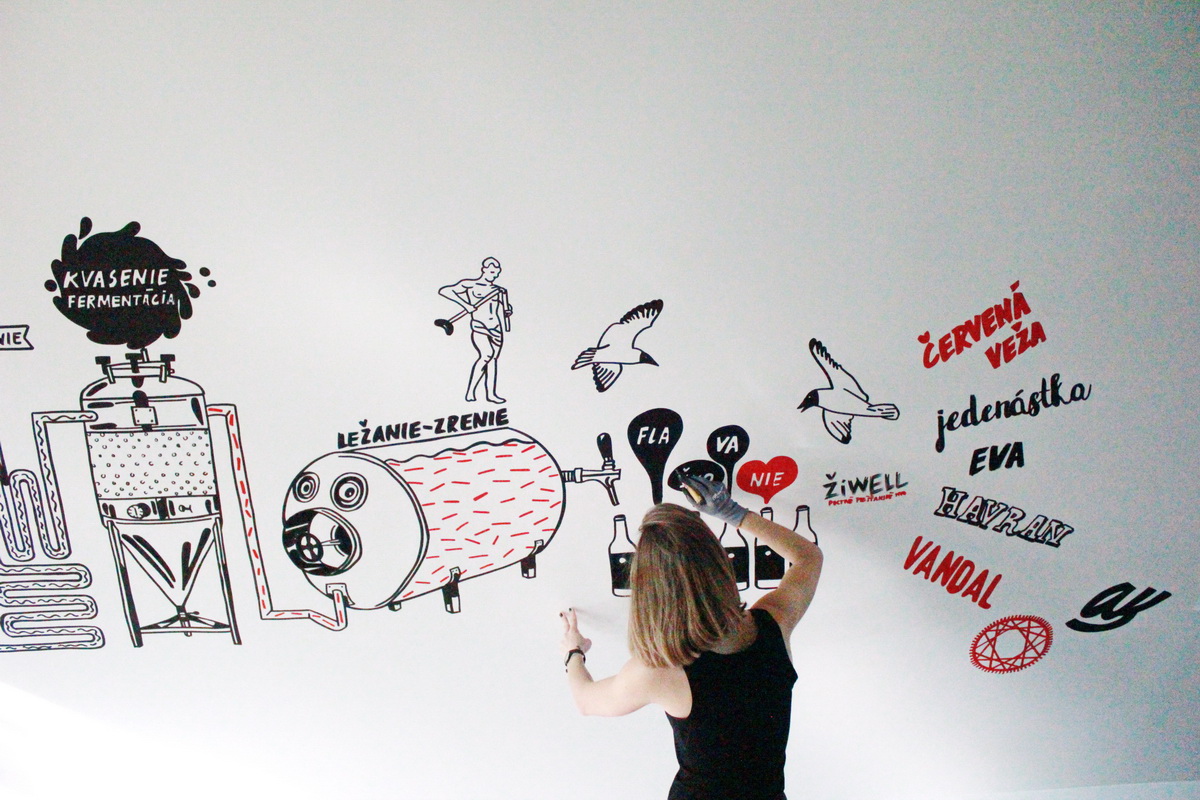 NIE
KVASENIE
FERMENTÁCIA
LEŽANIE-ZRENIE
FLA
VA
NIE
ŽiWELL
ČERVENÁ
VEŽA
jedenástka
EVA
HAVRAN
VANDAL